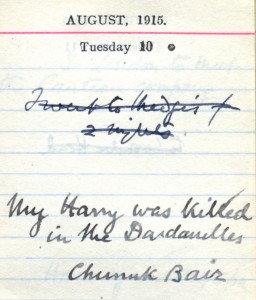 AUGUST, 1915.
Tuesday 10
I went to Madge's for
2 nights
My Harry was Killed
in the Dardanelles
Chunuk Bair